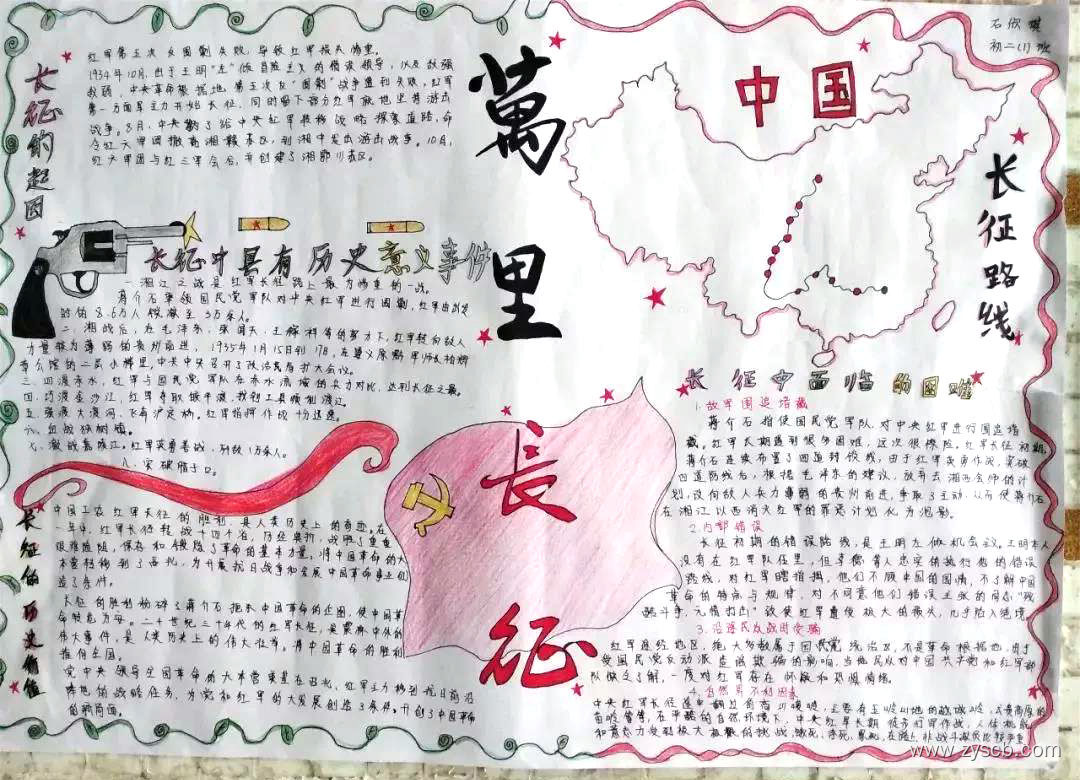 长征的起因
红军第五次反围剿失败，导致红军损失惨重。
1934年10月，由于王明"左"倾冒险主义的错误领导，以及敌强
我弱，中央革命根据地第五次反"围剿"战争遭到失败，红军
第一方面军主力开始长征，同时留下部分红军就地坚持游击
战争。8月，中央
令红六军团撤离湘赣苏区，到湘中发出游击战争。10月，
红六军团与红三军会合，并创建了湘鄂川
萬里
长征
中国
长征路线
初二(1)班
长征中具有历史意义事件
一.湘江之战是红军长征路上最为惨重的一战。
蒋介石率领国民党军队对中央红军进行围剿，红军由出发
时的8.6万人锐减至3万余人。
二.湘战后，在毛泽东，张闻天，王稼祥等的努力下，红军转向敌人
力量较为薄弱的贵州前进，1935年1月15日到17日，在遵义原黔军师长柏辉
章公馆的一层小楼里，中共中央召开了政治局扩大会议。
三.四渡赤水，红军与国民党军队在赤水流域的兵力对比，达到长征之最。
四.巧渡金沙江，红军夺取皎平渡，找到工具顺利渡江。
五.强渡大渡河，飞夺泸定桥，红军指挥作战十分迅速。
六.血战独树镇。
七.激战嘉陵江，红军英勇善战，歼敌1万余人。
八.突破腊子口。
长征的历史价值
中国工农红军长征的胜利，是人类历史上的奇迹。在
一年中，红军长征转战十四个省，历经曲折，战胜了重重
艰难险阻，保存和锻炼了革命的基本力量，将中国革命的大
本营转移到了西北，为开展抗日战争和发展中国革命事业创
造了条件。
长征的胜利粉碎了蒋介石扼杀中国革命的企图，使中国革
命转危为安。二十世纪三十年代的红军长征，是震撼中外的
伟大事件，是人类历史上的伟大壮举。将中国革命的胜利
推向全国。
党中央领导全国革命的大本营奠基在西北，红军主力移到抗日前沿
阵地的战略任务，为党和红军的大发展创造了条件。开创了中国革命
的新局面。
长征中面临的困难
1.敌军围追堵截
蒋介石指使国民党军队对中央红军进行围追堵
截。红军长期遇到很多困难，这次很惊险。红军长征初期，
蒋介石连续布置了四道封锁线，由于红军英勇作战，突破
四道防线后，根据毛泽东的建议，放弃去湘西会师的计
划，改向敌人兵力薄弱的贵州前进，争取了主动，从而使蒋介石
在湘江以西消灭红军的罪恶计划化为泡影。
2.内部错误
长征初期的错误路线，是王明左倾机会主义。王明本人
没有在红军队伍里，但李德等人忠实的执行他的错误
路线，对红军瞎指挥，他们不顾中国的国情，不了解中国
革命的特点与规律，对不同意他们错误主张的同志"残
酷斗争，无情打击"致使红军遭受极大的损失，几乎陷入绝境
3.沿途民众敌固受骗
红军途经地区，绝大多数属于国民党统治区，不是革命根据地，由于
受国民党反动派造谣欺骗的影响，当地民众对中国共产党和红军部
队缺乏了解，一度对红军存在怀疑和恐惧情绪。
4.自然界不利因素
www.zyscb.com